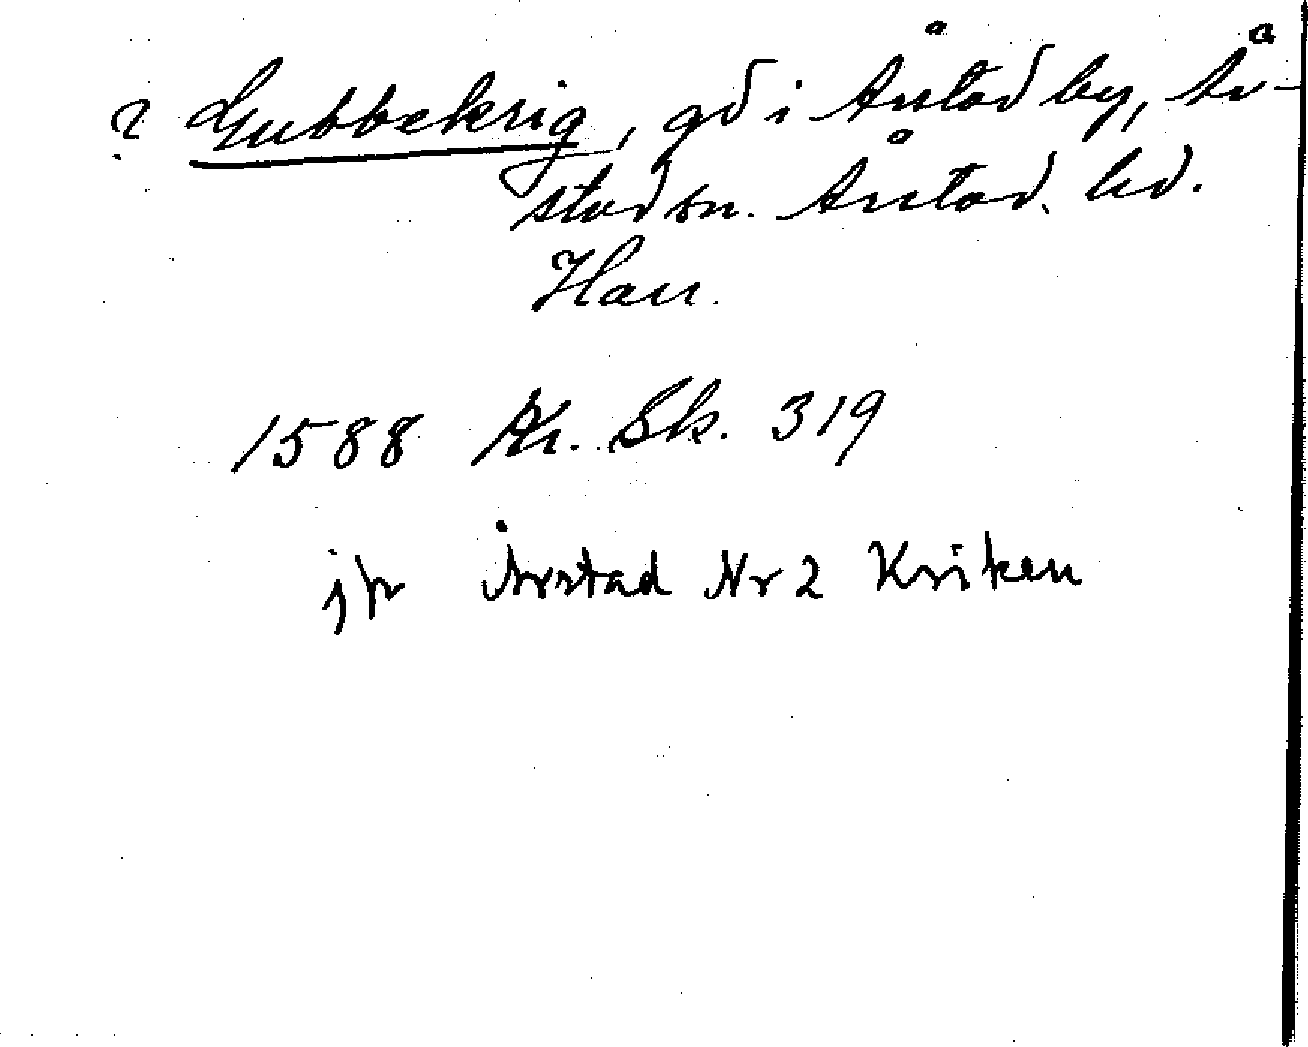 ? Gubbekrig, gd i Årstad by, År-
stad sn. Årstad. hd.
Hall.
1588 Kr. Sk. 319
jfr Årstad Nr 2 Kriken